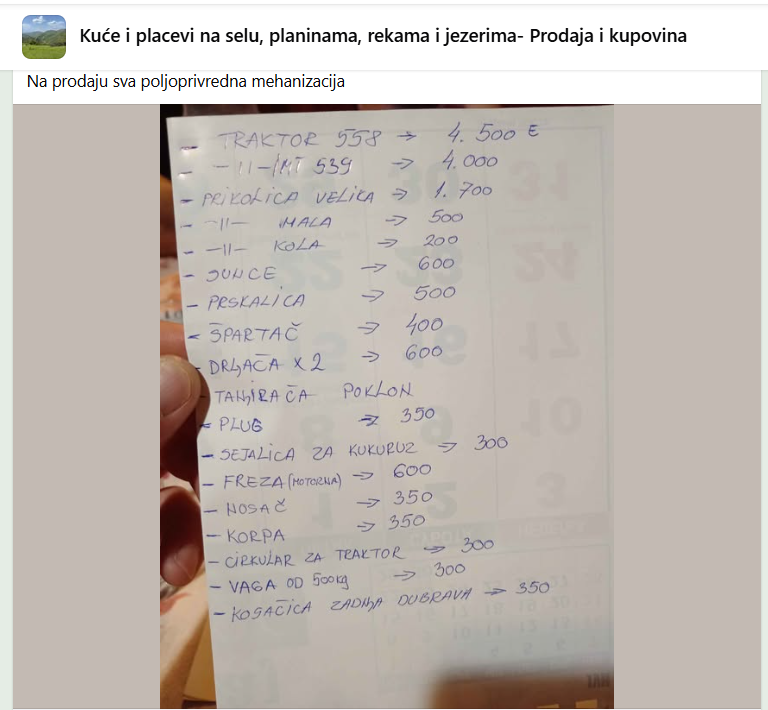 Kuće i placevi na selu, planinama, rekama i jezerima- Prodaja i kupovina
Na prodaju sva poljoprivredna mehanizacija
- TRAKTOR 558 → 4.500 E
- -11-IMT 539 → 4.000
- PRIKOLICA VELIKA → 1.700
- -11- MALA → 500
- -11- KOLA → 200
- SUNCE → 600
- PRSKALICA → 500
- ŠPARTAČ → 400
- DRLJAČA X 2 → 600
- TANJIRAČA POKLON
- PLUG → 350
- SEJALICA ZA KUKURUZ → 300
- FREZA (MOTORNA) → 600
- NOSAČ → 350
- KORPA → 350
- CIRKULAR ZA TRAKTOR → 300
- VAGA OD 500kg → 300
- KOSAČICA ZADNJA DUBRAVA → 350